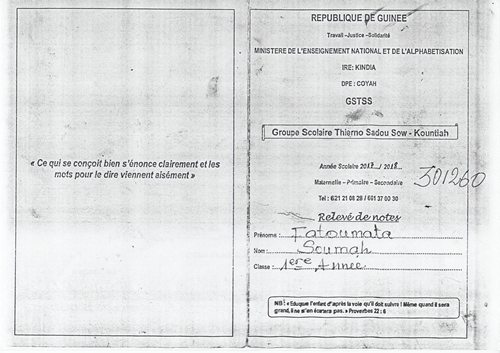 « Ce qui se conçoit bien s'énonce clairement et les
mots pour le dire viennent aisément »
REPUBLIQUE DE GUINEE
Travail -Justice -Solidarité
MINISTERE DE L'ENSEIGNEMENT NATIONAL ET DE L'ALPHABETISATION
IRE: KINDIA
DPE : COYAH
GSTSS
Groupe Scolaire Thierno Sadou Sow - Kountiah
Année Scolaire 2017/2018
Maternelle – Primaire – Secondaire
301260
Tel : 621 21 08 28 / 661 37 00 30
Relevé de notes
Prénoms : Fatoumata
Nom : Soumah
Classe : 1ere Année
NB : « Eduque l'enfant d'après la voie qu'il doit suivre ! Même quand il sera
grand, il ne s'en écartera pas. » Proverbes 22 : 6